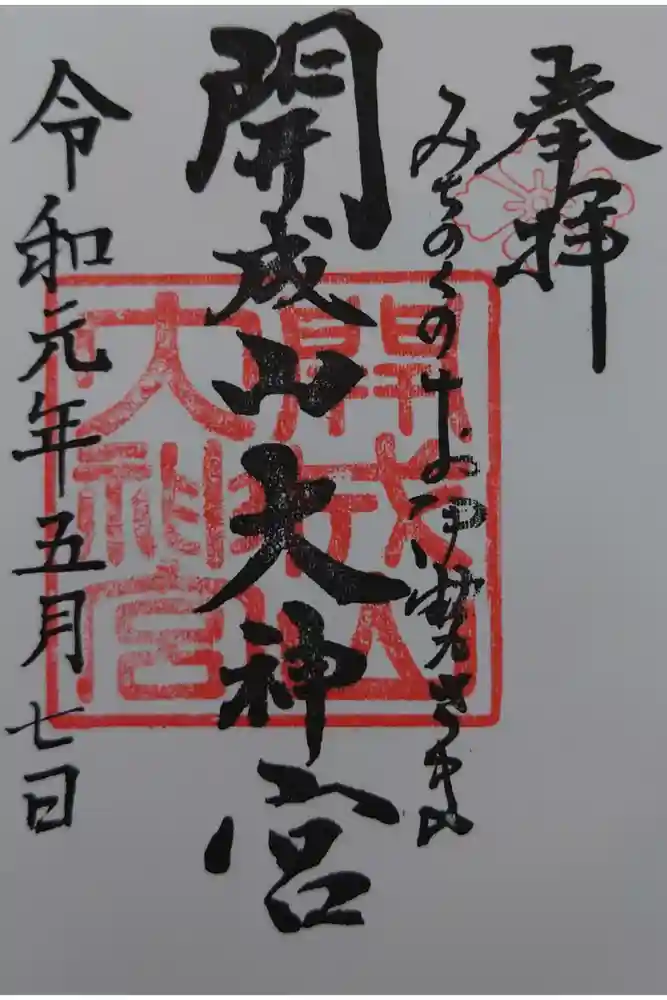 奉拝
みちのくのお伊勢さま
開成山大神宮
開成山大神宮
令和元年五月七日